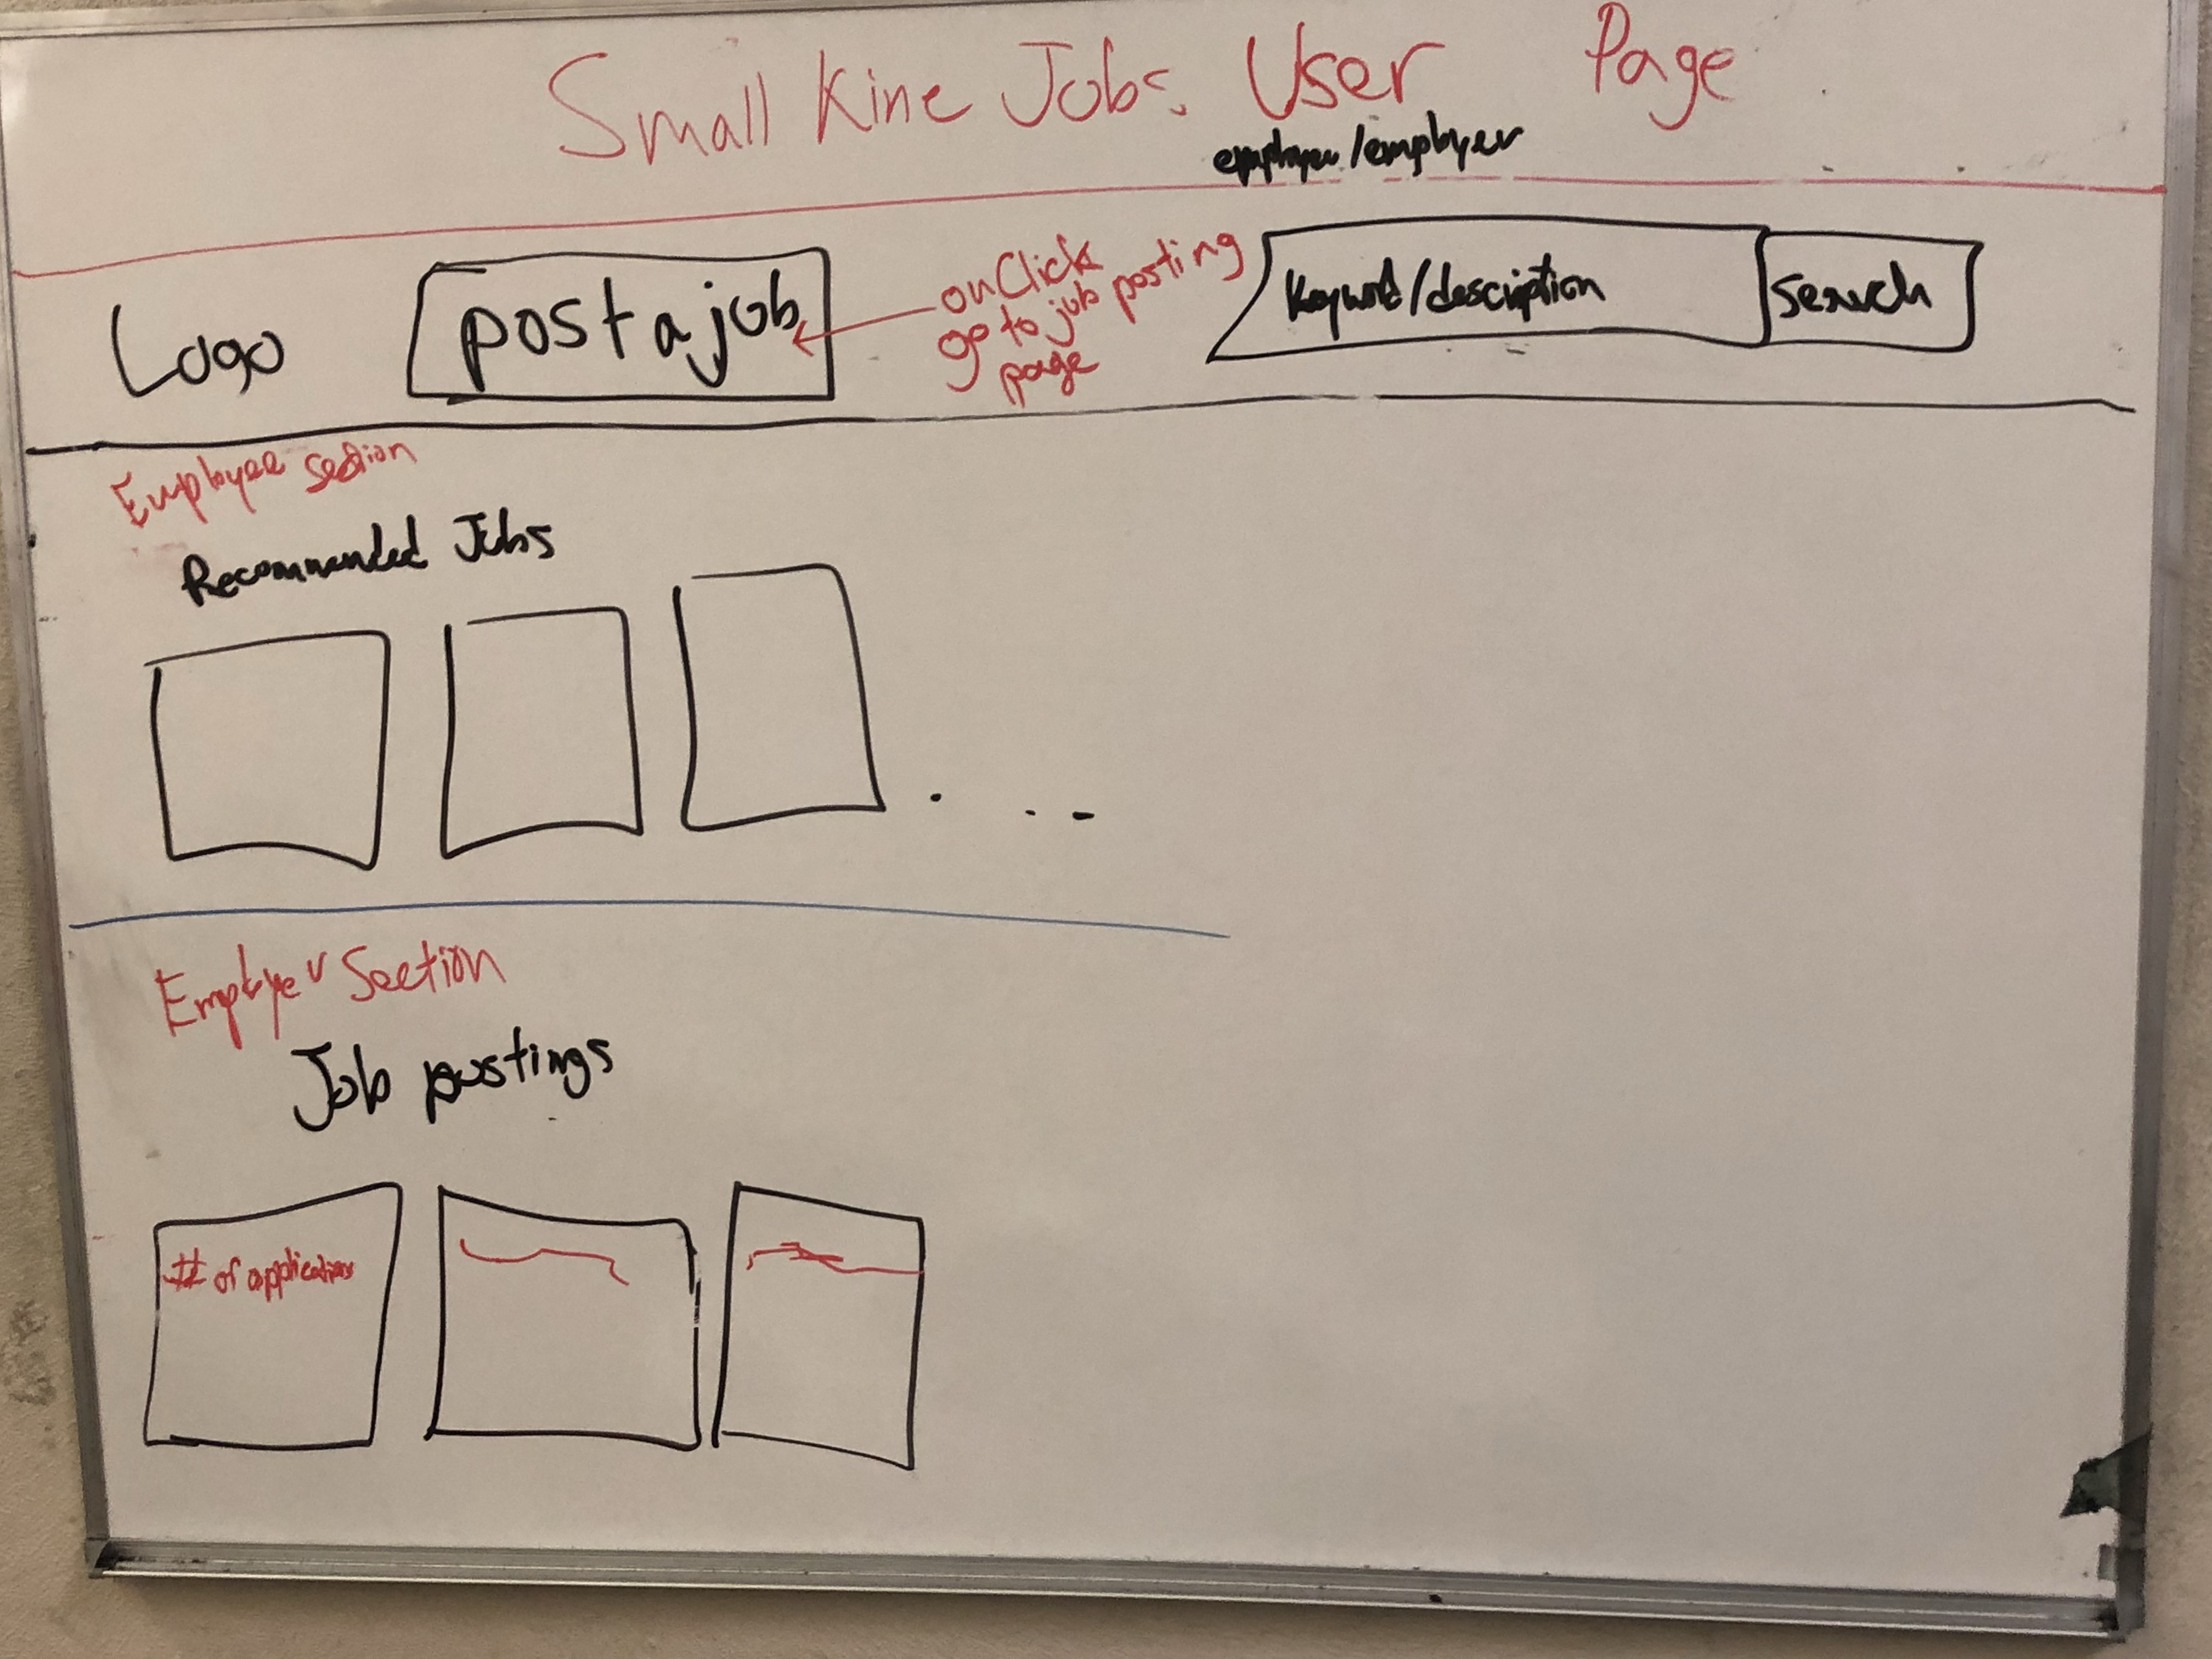 Small Kine Jobs. User Page
employee/employer
Logo
post a job
onClick
go to job posting
page
Keyword/description
search
Employee section
Recommended Jobs
Employer Section
Job postings
# of applications